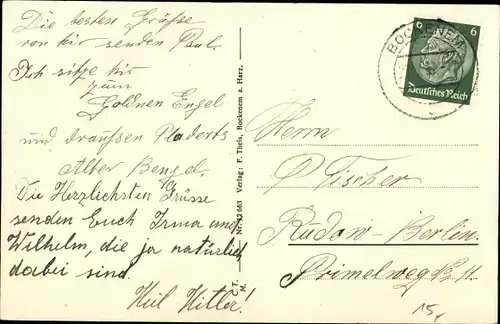 Die besten Grüsse
von hir senden Paul.
Ich sitze hir
zum
Goldnen Engel
und draussen Pladerts
Alter Bengel.
Die Herzlichsten Grüsse
senden Euch Irma und
Wilhelm, die ja natürlich
dabei sind.
Heil Hitler!
Nr. 12663 Verlag: F. Theis, Bockenem a. Harz.
C. T. M.
BOCKENEM
6 6
Deutsches Reich
Herrn
Fischer
Rudow-Berlin.
Primelweg
15,